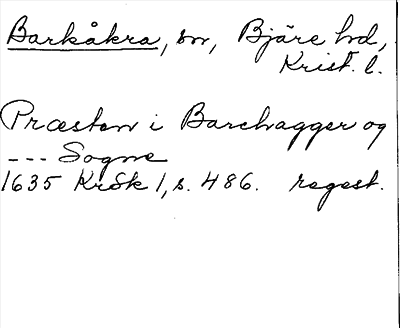 Barkåkra, sn, Bjäre hd,
Krist. l.
Præsten i Barchagger og
--- Sogne
1635 KrSk 1, s. 486. regest.